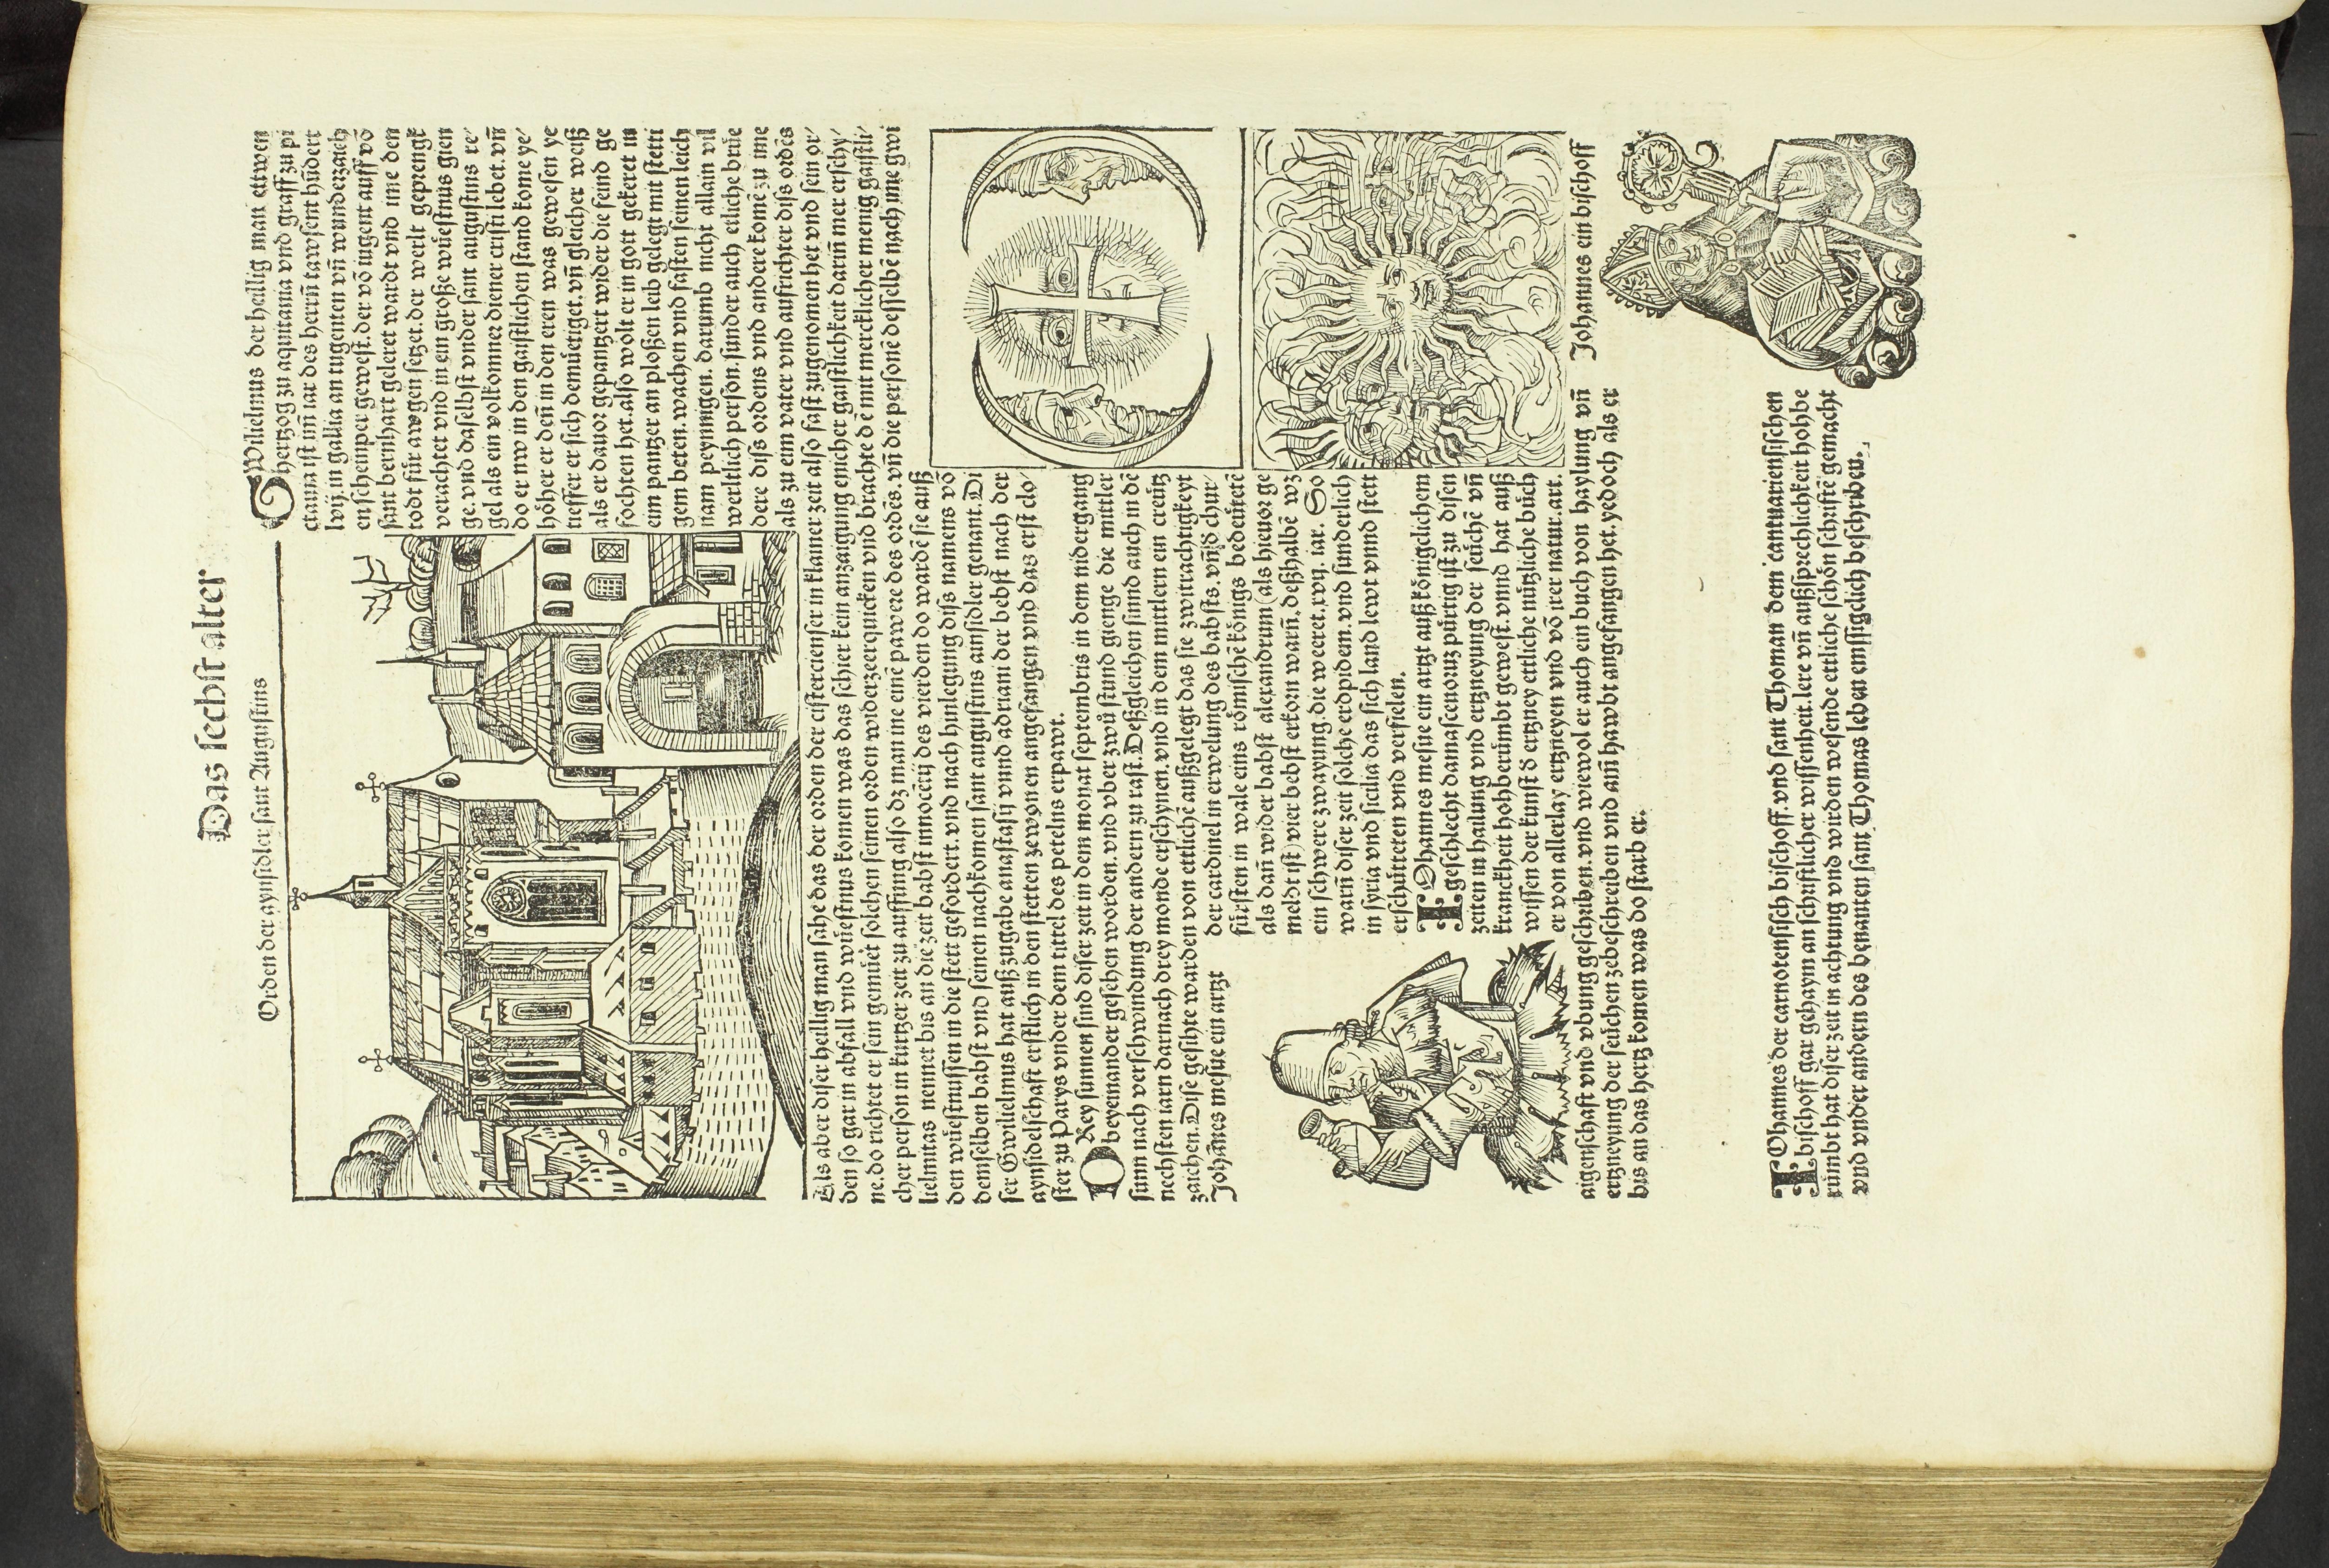 Das sechst alter
Orden der aynsidler sant Augustins
GWilielmus der heillig man ettwen
hertzog zu aquitania vnd graff zu pi
ctauia ist im̄ iar des herrn̄ tawsent hūdert
lvij. in gallia an tugenten vn̄ wunderzaich
en scheinper gewest. der vō iugent auff vō
sant bernhart geleret wardt vnd ime den
todt für awgen setzet. der werlt geprengk
verachtet vnd in ein große wüestnus gien
ge. vnd daselbst vnder sant augustins re⸗
gel als ein volkomner diener cristi lebet. vn̄
do er nw in den gaistlichen stand kome ye⸗
höher er den̄ in den eren was gewesen ye
tieffer er sich demütiget. vn̄ gleicher weiß
als er dauor gepantzert wider die feind ge
fochten het. also wolt er in gott gekeret in
eim pantzer an ploßen leib gelegt mit stetti
gem beten. wachen vnd fasten seinen leich
nam peynnigen. darumb nicht allain vil
werltlich person. sunder auch etliche brüe
dere diss ordens vnd andere komē zu ime
als zu eim vater vnd aufrichter diss ordēs
Als aber diser heillig man sahe das der orden der cistercienser in klainer zeit also fast zugenomen het vnd sein or⸗
den so gar in abfall vnd wüestnus komen was das schier kein anzaigung enicher gaistlichkeit darin̄ mer erschy⸗
ne. do richtet er sein gemüet solchen seinen orden widerzeerquicken vnd brachte dē mit mercklicher menig gaistli⸗
cher person in kurtzer zeit zu auffung also dz man ine einē pawere des ordēs. vn̄ die personē desselbē nach ime gwi
lielmitas nennet bis an die zeit babst innocētij des vierden do wardē sie auß
den wüestnussen in die stett gefordert. vnd nach hinlegung diss namens vō
demselben babst vnd seinen nachkomen sant augustins ainsidler genant. Di
ser Gwilielmus hat außzugabe anastasij vnnd adriani der bebst nach der
aynsidelschaft erstlich in den stetten zewonen angefangen vnd das erst clo⸗
ster zu Parys vnder dem tittel des petelns erpawt.
DRey sunnen sind diser zeit in dem monat septembris in dem nidergang
beyeinander gesehen worden. vnd vber zwů stund gienge die mitler
sunn nach verschwindung der andern zu rast. Deßgleichen sinnd auch in dē
nechsten iarn darnach drey monde erschynen. vnd in dem mitlern ein creütz
zaichen. Dise gesihte warden von ettlichē außgelegt das sie zwitrachtigkeyt
der cardinel in erwelung des babsts. vn̄ d chur⸗
fürsten in wale eins römischē königs bedeütetē
als dan̄ wider babst alexandrum (als hieuor ge
meldt ist) vier bebst erkorn warn̄. deßhalbē wz
ein schwere zwayung. die weeret. xvij. iar. So
warn̄ diser zeit solche erdpidem. vnd sunderlich
in syria vnd sicilia das sich land lewt vnnd stett
erschütteten vnd verfielen.
Johānes mesue ein artzt
IOhannes mesue ein artzt auß königelichem
geschlecht damascenorum pürtig ist zu disen
zeiten in hailung vnd ertzneyung der seüchē vn̄
kranckheit hohberümbt gewest. vnnd hat auß
wissen der kunst d ertzney ettliche nützliche büch
er von allerlay ertzneyen vnd vō irer natur. art.
aigenschaft vnd vbung geschriben. vnd wiewol er auch ein buch von haylung vn̄
ertzneyung der seüchen zebeschreiben vnd am̄ hawbt angefangen het. yedoch als er
bis an das hertz komen was do starb er.
Johannes ein bischoff
IOhannes der carnotensisch bischoff. vnd sant Thoman dem cantuariensischen
bischoff gar gehaym an schriftlicher wissenheit. lere vn̄ außsprechlichkeit hohbe
rümbt hat diser zeit in achtung vnd wirden wesende ettliche schön schriftē gemacht
vnd vnder andern des benanten sant Thomas leben emssigclich beschriben.